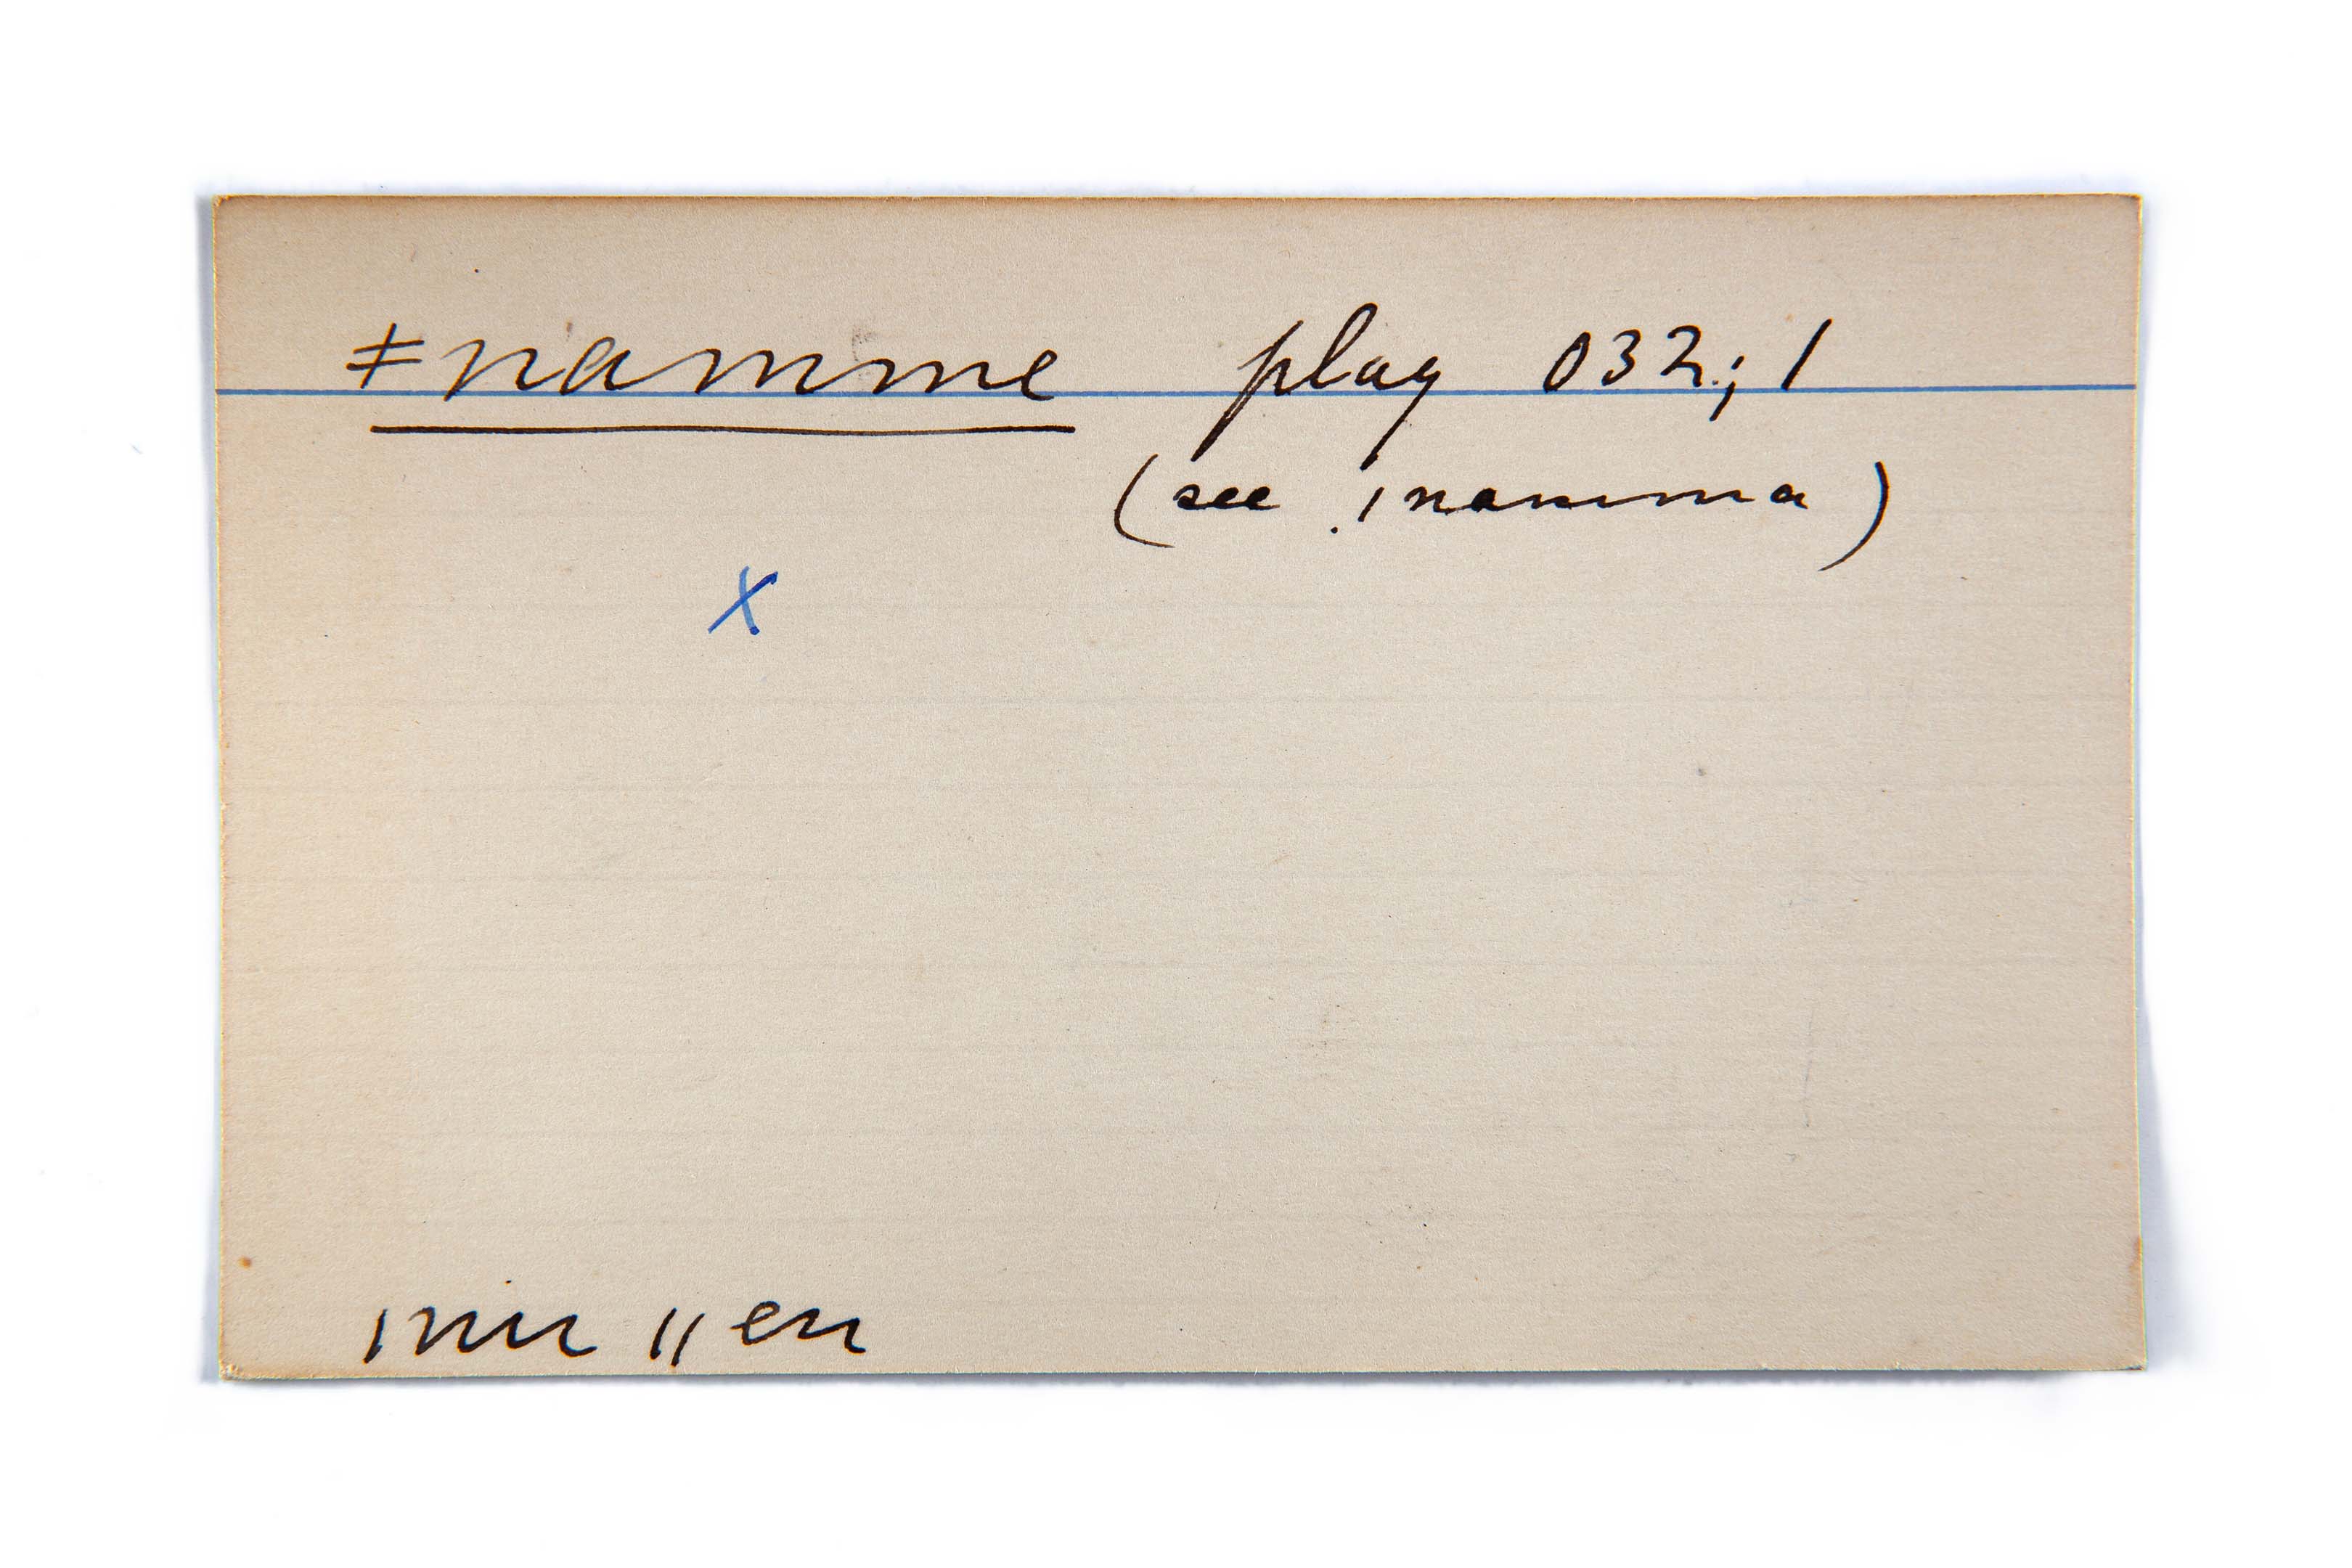 ǂnamme play 032; 1
(see !namma)
x
ǀnu ǁen